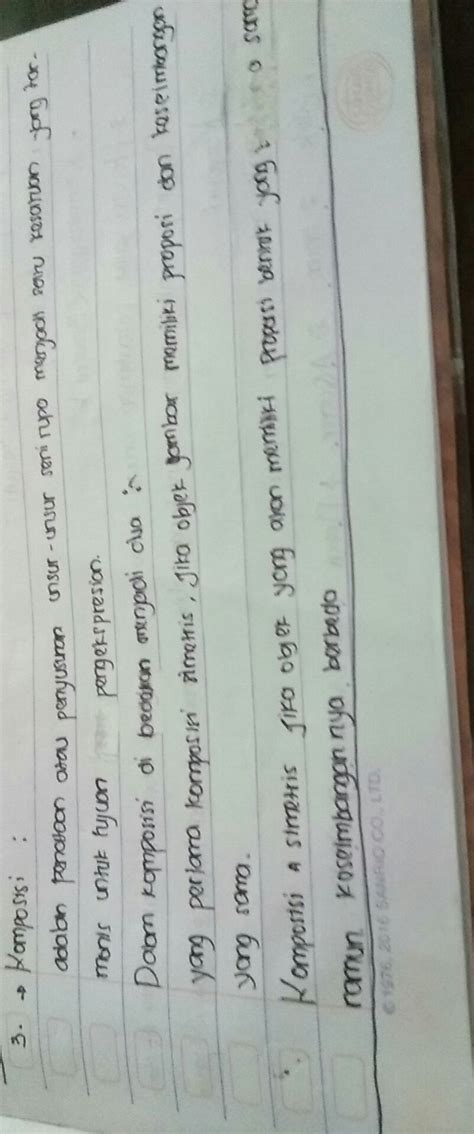 3. → Komposisi :
adalah penataan atau penyusunan unsur-unsur seni rupa menjadi satu kesatuan yang har-
monis untuk tujuan pengekspresian.
Dalam komposisi di bedakan menjadi dua :
yang pertama komposisi simetris, jika objek gambar memiliki proposi dan keseimbangan
yang sama.
Komposisi a simetris jika objek yang akan memiliki proporsi bentuk yang sama
namun keseimbangannya berbeda
© 1976, 2016 SANRIO CO., LTD.